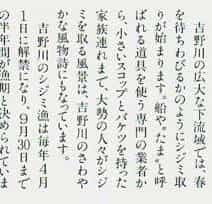 吉野川の広大な下流域では、春
を待ちわびるかのようにシジミ取
りが始まります。船や〝たま〟と呼
ばれる道具を使う専門の業者か
ら、小さいスコップとバケツを持った
家族連れまで、大勢の人々がシジ
ミを取る風景は、吉野川のさわや
かな風物詩にもなっています。
吉野川のシジミ漁は毎年4月
1日に解禁になり、9月30日まで
の半年間が漁期と決められていま